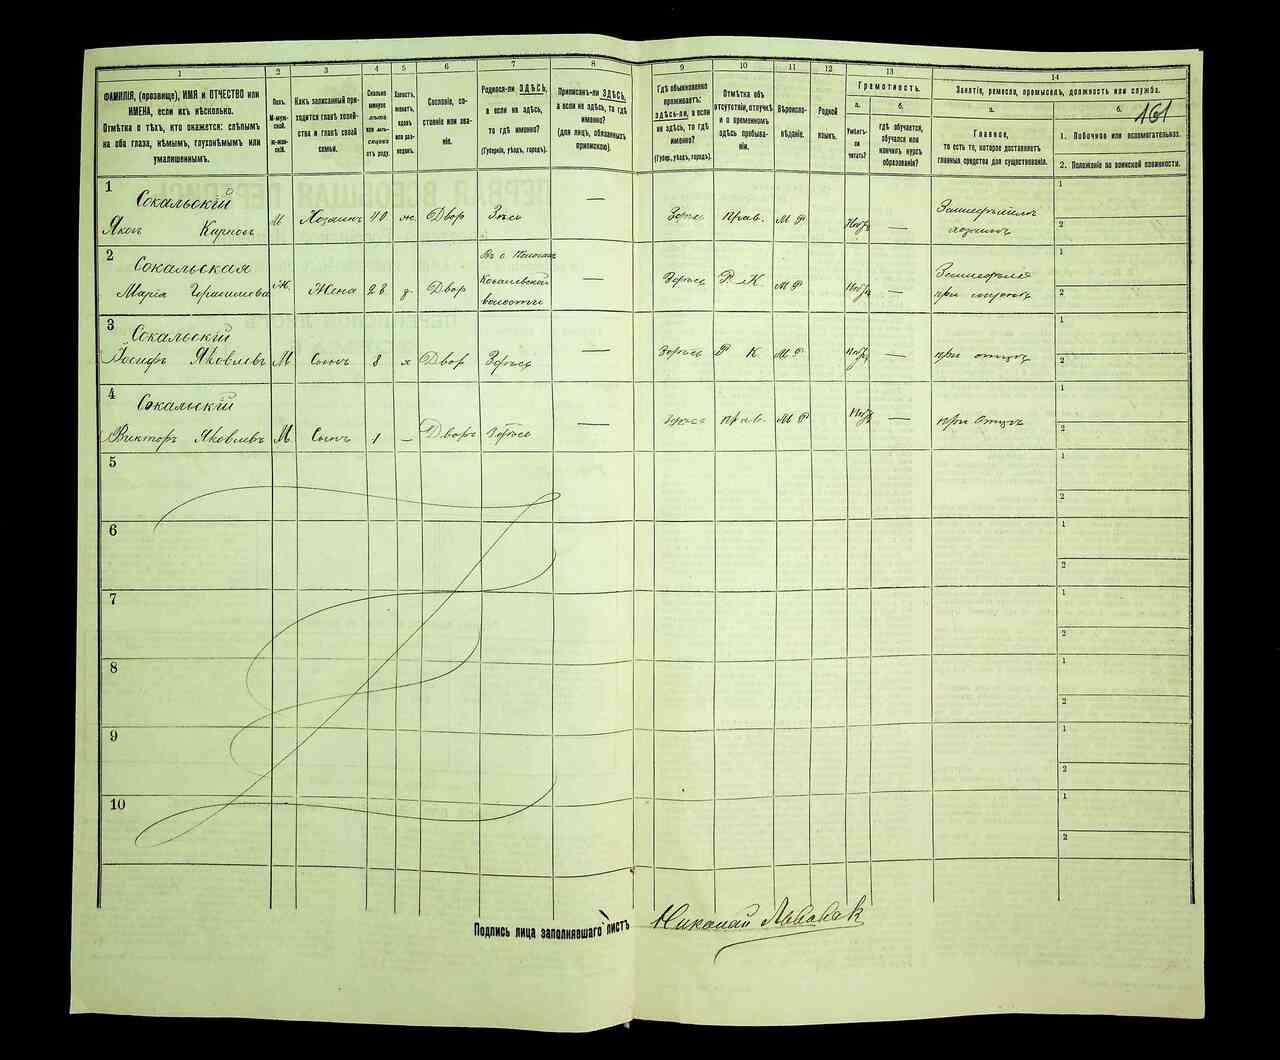 1 2 3 4 5 6 7 8 9 10 11 12 13 14
161
ФАМИЛІЯ, (прозвище), ИМЯ и ОТЧЕСТВО или
ИМЕНА, если ихъ нѣсколько.
Отмѣтка о тѣхъ, кто окажется: слѣпымъ
на оба глаза, нѣмымъ, глухонѣмымъ или
умалишеннымъ.
Полъ.
М-муж-
ской.
ж-жен-
скій.
Какъ записанный при-
ходится главѣ хозяй-
ства и главѣ своей
семьи.
Сколько
минуло
лѣтъ
или мѣ-
сяцевъ
отъ роду.
Холостъ,
женатъ,
вдовъ
или раз-
веденъ.
Сословіе, со-
стояніе или зва-
ніе.
Родился-ли ЗДѢСЬ,
а если не здѣсь,
то гдѣ именно?
(Губернія, уѣздъ, городъ).
Приписанъ-ли ЗДѢСЬ,
а если не здѣсь, то гдѣ
именно?
(для лицъ, обязанныхъ
припискою).
Гдѣ обыкновенно
проживаетъ:
здѣсь-ли, а если
не здѣсь, то гдѣ
именно?
(Губер., уѣздъ, городъ).
Отмѣтка объ
отсутствіи, отлучкѣ
и о временномъ
здѣсь пребыва-
ніи.
Вѣроиспо-
вѣданіе.
Родной
языкъ.
Грамотность.
а.
Умѣетъ-
ли
читать?
б.
гдѣ обучается,
обучался или
кончилъ курсъ
образованія?
Занятіе, ремесло, промыселъ, должность или служба.
а.
Главное,
то есть то, которое доставляетъ
главныя средства для существованія.
б.
1. Побочное или вспомогательное.
2. Положеніе по воинской повинности.
1
Сокальскій
Яков Карпов М Хозяинъ 40 ж. Двор Здѣсь — прав. М Р — 1 2
2
Сокальская
Марія Герасимова Ж Жена 28 Двор
волости
— Р. К М Р — 1 2
3
Сокальскій
Іосифъ Яковлевъ М Сынъ 8 х Двор Здѣсь — Р К М Р — при отцѣ 1 2
4
Сокальскій
Викторъ Яковлевъ М Сынъ 1 — Дворъ Здѣсь — прав. М Р — при отцѣ 1 2
5 1 2
6 1 2
7 1 2
8 1 2
9 1 2
10 1 2
Подпись лица заполнявшаго листъ Николай